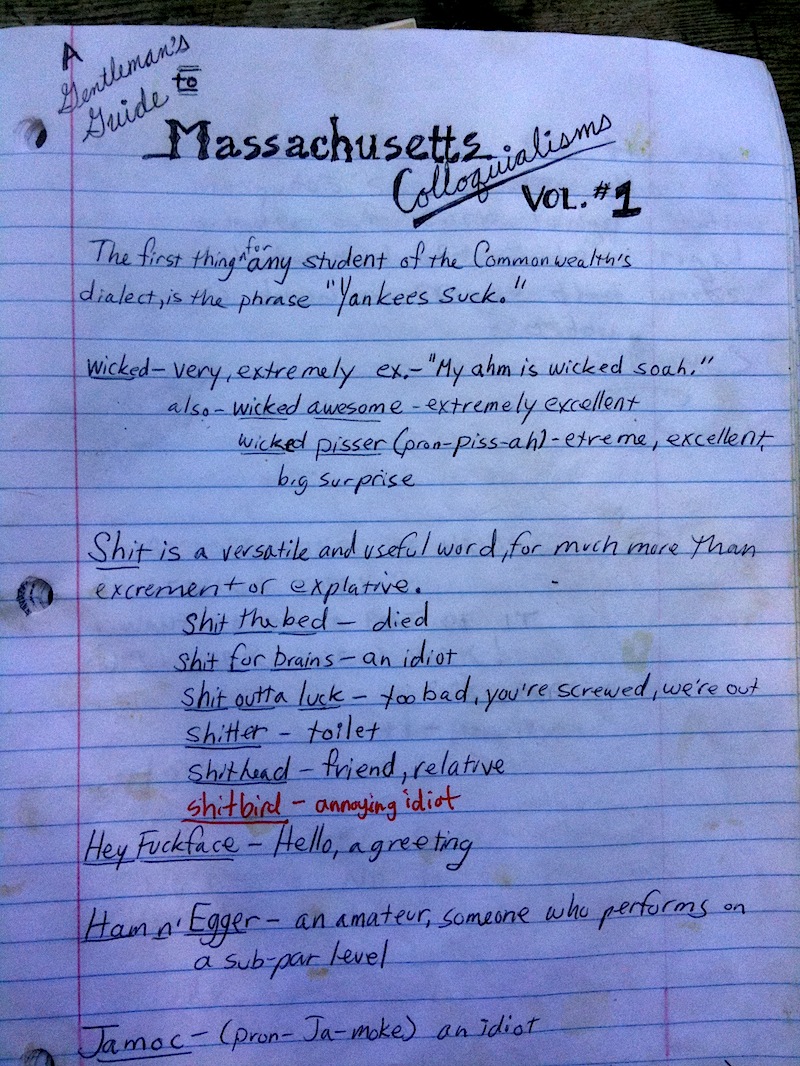 A
Gentleman's
Guide to
Massachusetts
Colloquialisms
VOL. #1
The first thing ^for any student of the Commonwealth's
dialect, is the phrase "Yankees Suck."
wicked - very, extremely ex.- "My ahm is wicked soah."
also - wicked awesome - extremely excellent
wicked pisser (pron-piss-ah) - etreme, excellent,
big surprise
Shit is a versatile and useful word, for much more than
excrement or explative.
Shit the bed - died
Shit for brains - an idiot
Shit outta luck - too bad, you're screwed, we're out
shitter - toilet
shithead - friend, relative
shitbird - annoying idiot
Hey Fuckface - Hello, a greeting
Ham n' Egger - an amateur, someone who performs on
a sub-par level
Jamoc - (pron- Ja-moke) an idiot